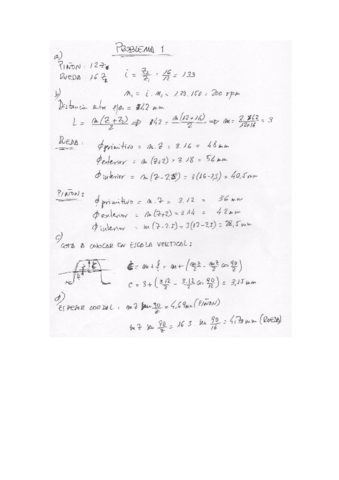 PROBLEMA 1
a)
PIÑON: 12 Z1
RUEDA: 16 Z2
i = Z2/Z1 = 16/12 = 1.33
b)
n1 = i · n2 = 1.33 · 150 = 200 rpm
Distancia entre ejes = 42 mm
L = m(Z1+Z2)/2 ⇒ 42 = m(12+16)/2 ⇒ m = 2·42/12+16 = 3
RUEDA:
φ primitivo = m.Z = 3.16 = 48 mm
φ exterior = m(Z+2) = 3.18 = 54 mm
φ interior = m(Z-2,5) = 3(16-2,5) = 40,5 mm
PIÑON:
φ primitivo = m.Z = 3.12 = 36 mm
φ exterior = m(Z+2) = 3.14 = 42 mm
φ interior = m(Z-2,5) = 3(12-2,5) = 28,5 mm
c)
COTA A COLOCAR EN ESCALA VERTICAL:
C = m + f = m + (mZ/2 - mZ/2 cos 90/Z)
C = 3 + (3.12/2 - 3.12/2 cos 90/12) = 3,15 mm
d)
ESPESOR CORDAL = mZ sen 90/Z = 4,69 mm (PIÑON)
mZ sen 90/Z = 16.3 sen 90/16 = 4,70 mm (RUEDA)